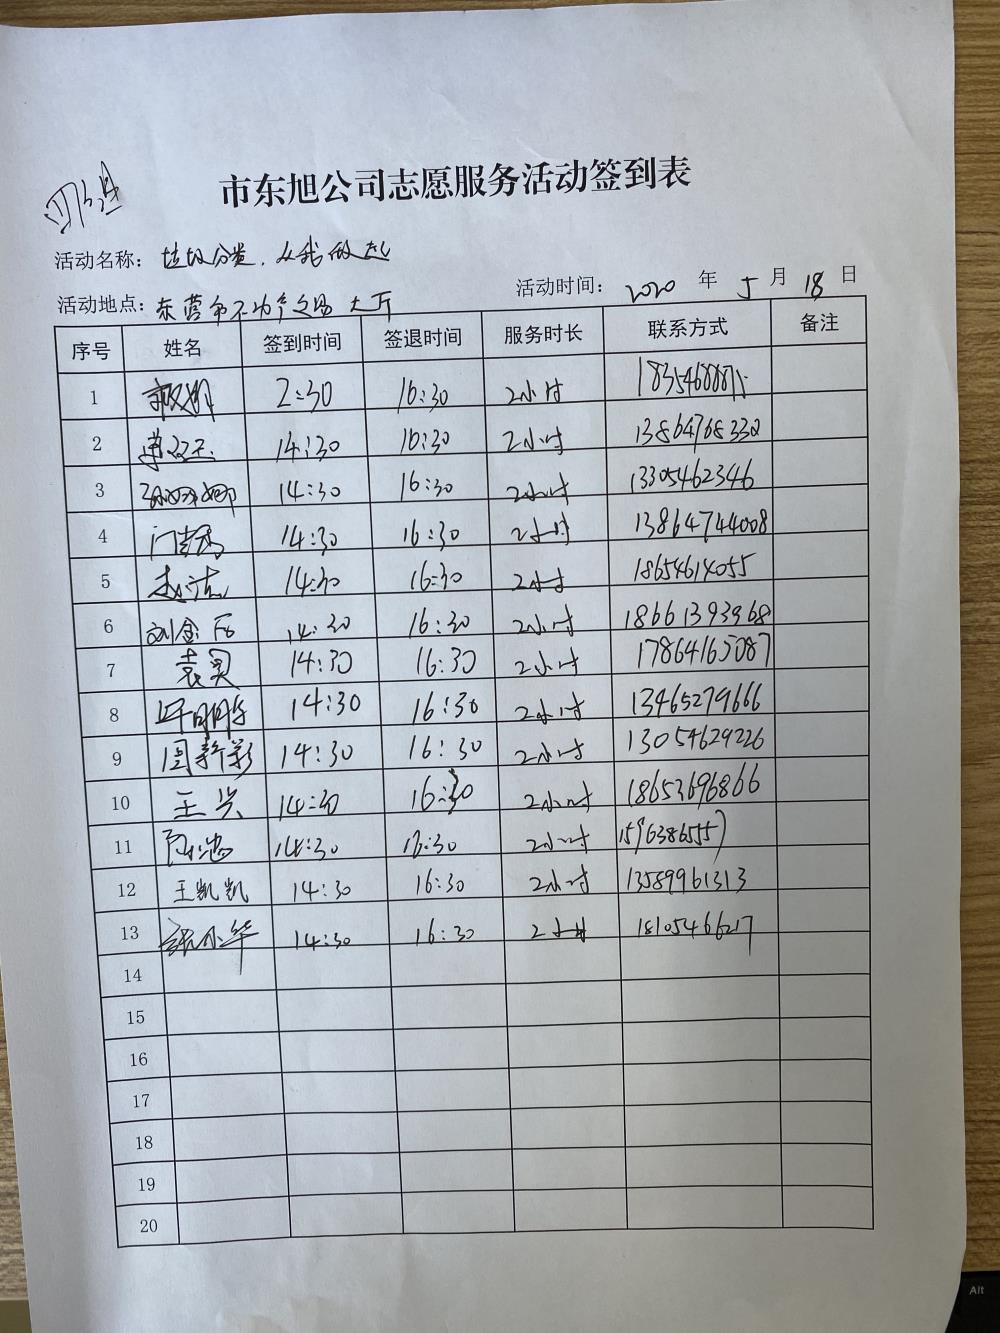 市东旭公司志愿服务活动签到表
活动名称：垃圾分类，从我做起
活动时间：2020 年 5 月 18 日
活动地点：东营市不动产交易大厅
序号 姓名 签到时间 签退时间 服务时长 联系方式 备注
1 2:30 16:30 2小时
2 14:30 16:30 2小时 13864768332
3 孙娜娜 14:30 16:30 2小时 13305462346
4 14:30 16:30 2小时 13864744008
5 14:30 16:30 2小时 18654614055
6 14:30 16:30 2小时 18661393968
7 袁昊 14:30 16:30 2小时 17864165087
8 14:30 16:30 2小时 13465279666
9 周新彩 14:30 16:30 2小时 13054629226
10 王兴 14:30 16:30 2小时 18653696866
11 14:30 16:30 2小时 15963865557
12 王凯凯 14:30 16:30 2小时 13589961313
13 张小华 14:30 16:30 2小时 18105466217
14
15
16
17
18
19
20
Alt